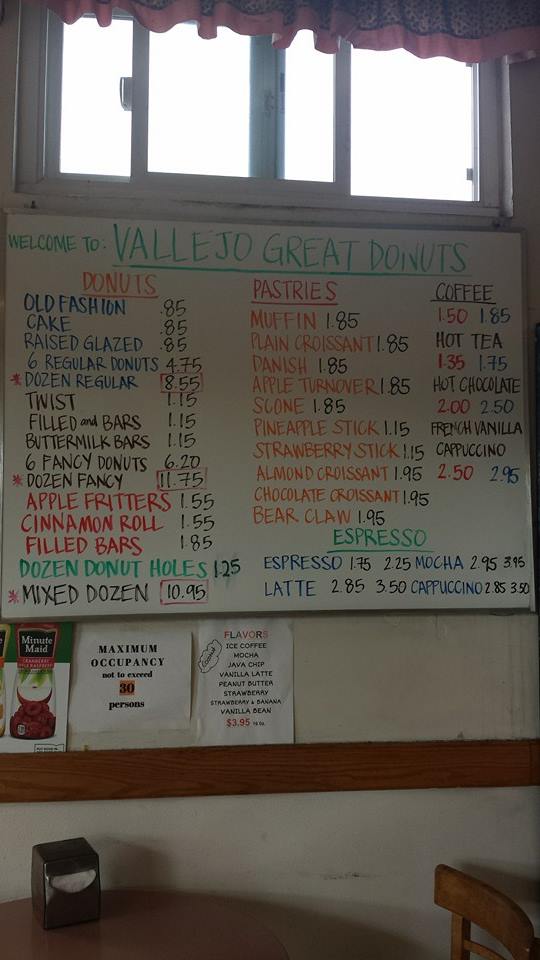 WELCOME TO: VALLEJO GREAT DONUTS
DONUTS
OLD FASHION .85
CAKE .85
RAISED GLAZED .85
6 REGULAR DONUTS 4.75
* DOZEN REGULAR 8.55
TWIST 1.15
FILLED and BARS 1.15
BUTTERMILK BARS 1.15
6 FANCY DONUTS 6.20
* DOZEN FANCY 11.75
APPLE FRITTERS 1.55
CINNAMON ROLL 1.55
FILLED BARS 1.85
DOZEN DONUT HOLES 1.25
* MIXED DOZEN 10.95
PASTRIES
MUFFIN 1.85
PLAIN CROISSANT 1.85
DANISH 1.85
APPLE TURNOVER 1.85
SCONE 1.85
PINEAPPLE STICK 1.15
STRAWBERRY STICK 1.15
ALMOND CROISSANT 1.95
CHOCOLATE CROISSANT 1.95
BEAR CLAW 1.95
COFFEE
1.50 1.85
HOT TEA
1.35 1.75
HOT CHOCOLATE
2.00 2.50
FRENCH VANILLA
CAPPUCCINO
2.50 2.95
ESPRESSO
ESPRESSO 1.75 2.25 MOCHA 2.95 3.95
LATTE 2.85 3.50 CAPPUCCINO 2.85 3.50
Minute
Maid
CRANBERRY
APPLE RASPBERRY
MAXIMUM
OCCUPANCY
not to exceed
30
persons
FLAVORS
ICE COFFEE
MOCHA
JAVA CHIP
VANILLA LATTE
PEANUT BUTTER
STRAWBERRY
STRAWBERRY & BANANA
VANILLA BEAN
$3.95 16 oz.